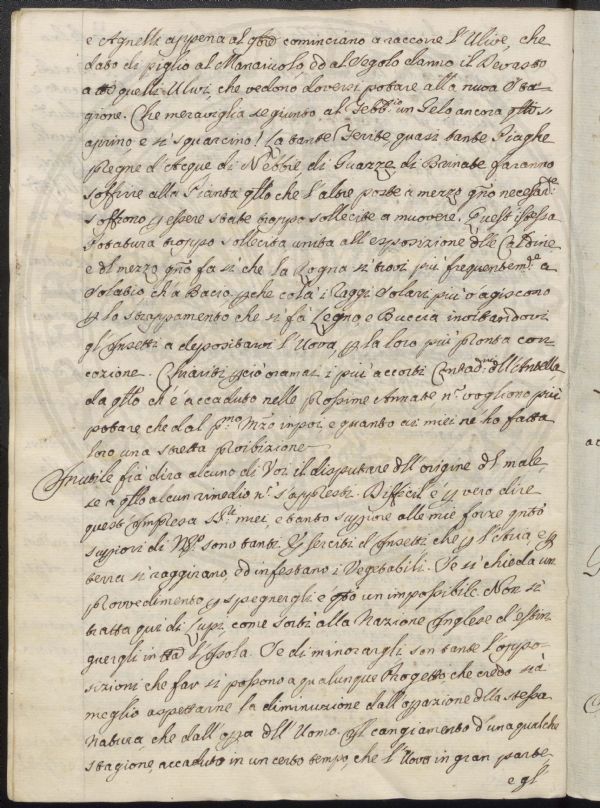 e Agnelli appena al qto cominciano a raccorre l'Ulive, che
dato di piglio al Manaiuolo, ed al Segolo danno il Devasto
a quelli Ulivi, che vedono doversi potare alla nuova Sta-
gione. Che meraviglia se giunto al Febb.io un Gelo ancora
s'aprino e si squarcino! La tante ferite, quasi tante Piaghe
Pregne d'Acque di Nebbie, di Guazze, di Brinate faranno
soffrire alla Pianta qllo che l'altre poste a mezzo gño necessar.te
soffrono p essere state troppo sollecite a muovere. Quest'istessa
Potatura troppo sollecita unita all'esposizione dlle Caldine
e dl mezzo gño fa sì che la Rogna si trovi più frequentem.te a
Solatio ch'a Bacio, pche colà i Raggi Solari più v'agiscono
p lo strappamento che si fà Legno, e Buccia invitandovi
gl'Insetti a depositarvi l'Uova, p la loro più pronta con-
cozione. Chiariti pciò oramai i più accorti Contad.ni dll'Antella
da qllo ch'è accaduto nelle Prossime Annate n. vogliono più
potare che dal p.mo Mzo in poi, e quanto ai miei ne ho fatta
loro una stretta Proibizione
Inutile fia dira alcuno di Voi il disputare dll'origine dl male
se a qllo alcun rimedio n. s'appresti. Difficil'è p vero dire
quest'Impresa SS.ti miei, e tanto suppiore alle mie forze qnto
suppiori di No sono tanti Eserciti d'Insetti che p l'Aria, e p
terra si raggirano, ed infestano i Vegetabili. Se si chieda un
Provvedimento p spegnergli e qto un impossibile. Non si
tratta qui di Lupi come sortì alla Nazione Inglese d'estin
guergli in tta l'Isola. Se di minorargli son tante l'oppo-
sizioni che far si possono a qualunque Progetto, che credo sia
meglio aspettarne la diminuzione dall'opazione dlla stessa
Natura, che dall'opa dll'Uomo. Il cangiamento d'una qualche
stagione, accaduto in un certo tempo, che l'Uova in gran parte,
e gl'